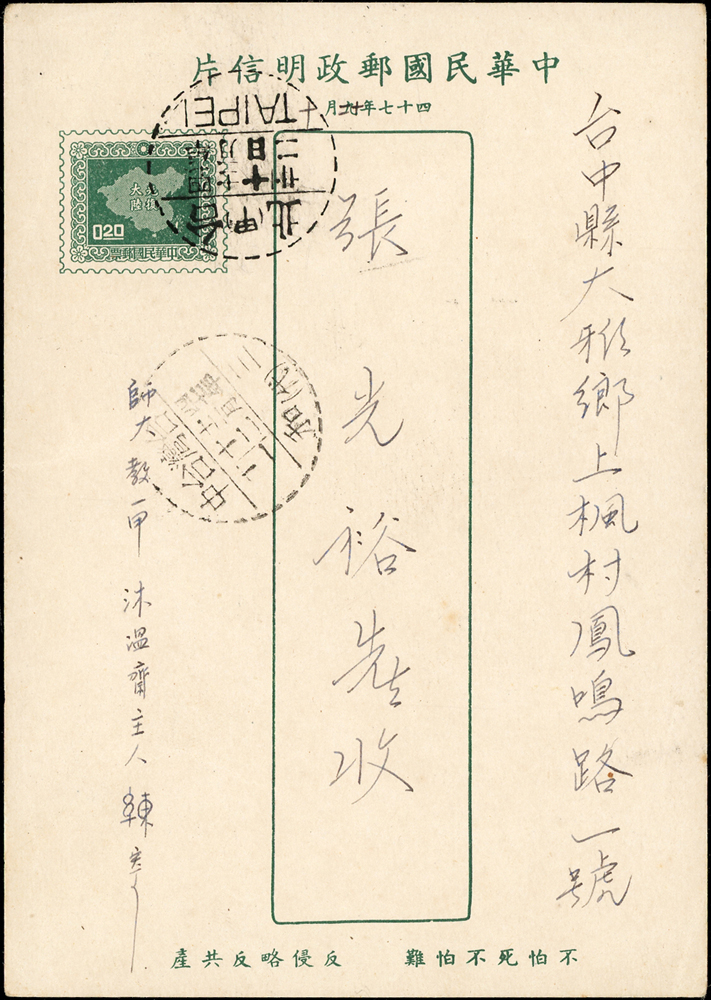 中華民國郵政明信片
四十七年九月
台中縣大雅鄉上楓村鳳鳴路一號
張光裕先生收
師大教一甲 沐溫齋主人
光復
大陸
0.20
中華民國郵票
TAIPEI
十二月
廿二日
台北
(甲)
台灣
台中
不怕死不怕難 反侵略反共產